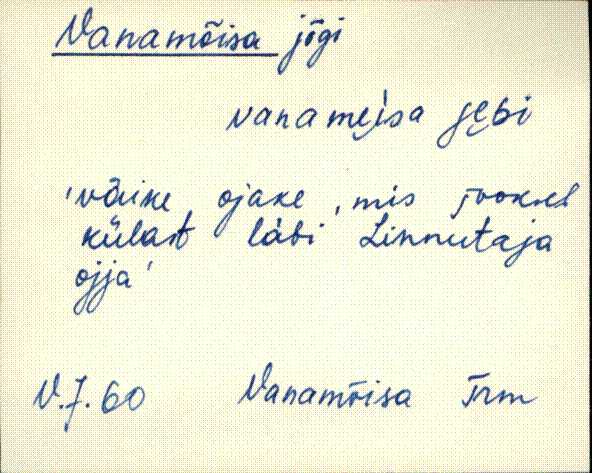 Vanamõisa jõgi
vanamęi̯sa jębi
'väike ojake, mis jookseb
külast läbi Linnutaja
ojja'
V.J. 60 Vanamõisa Trm